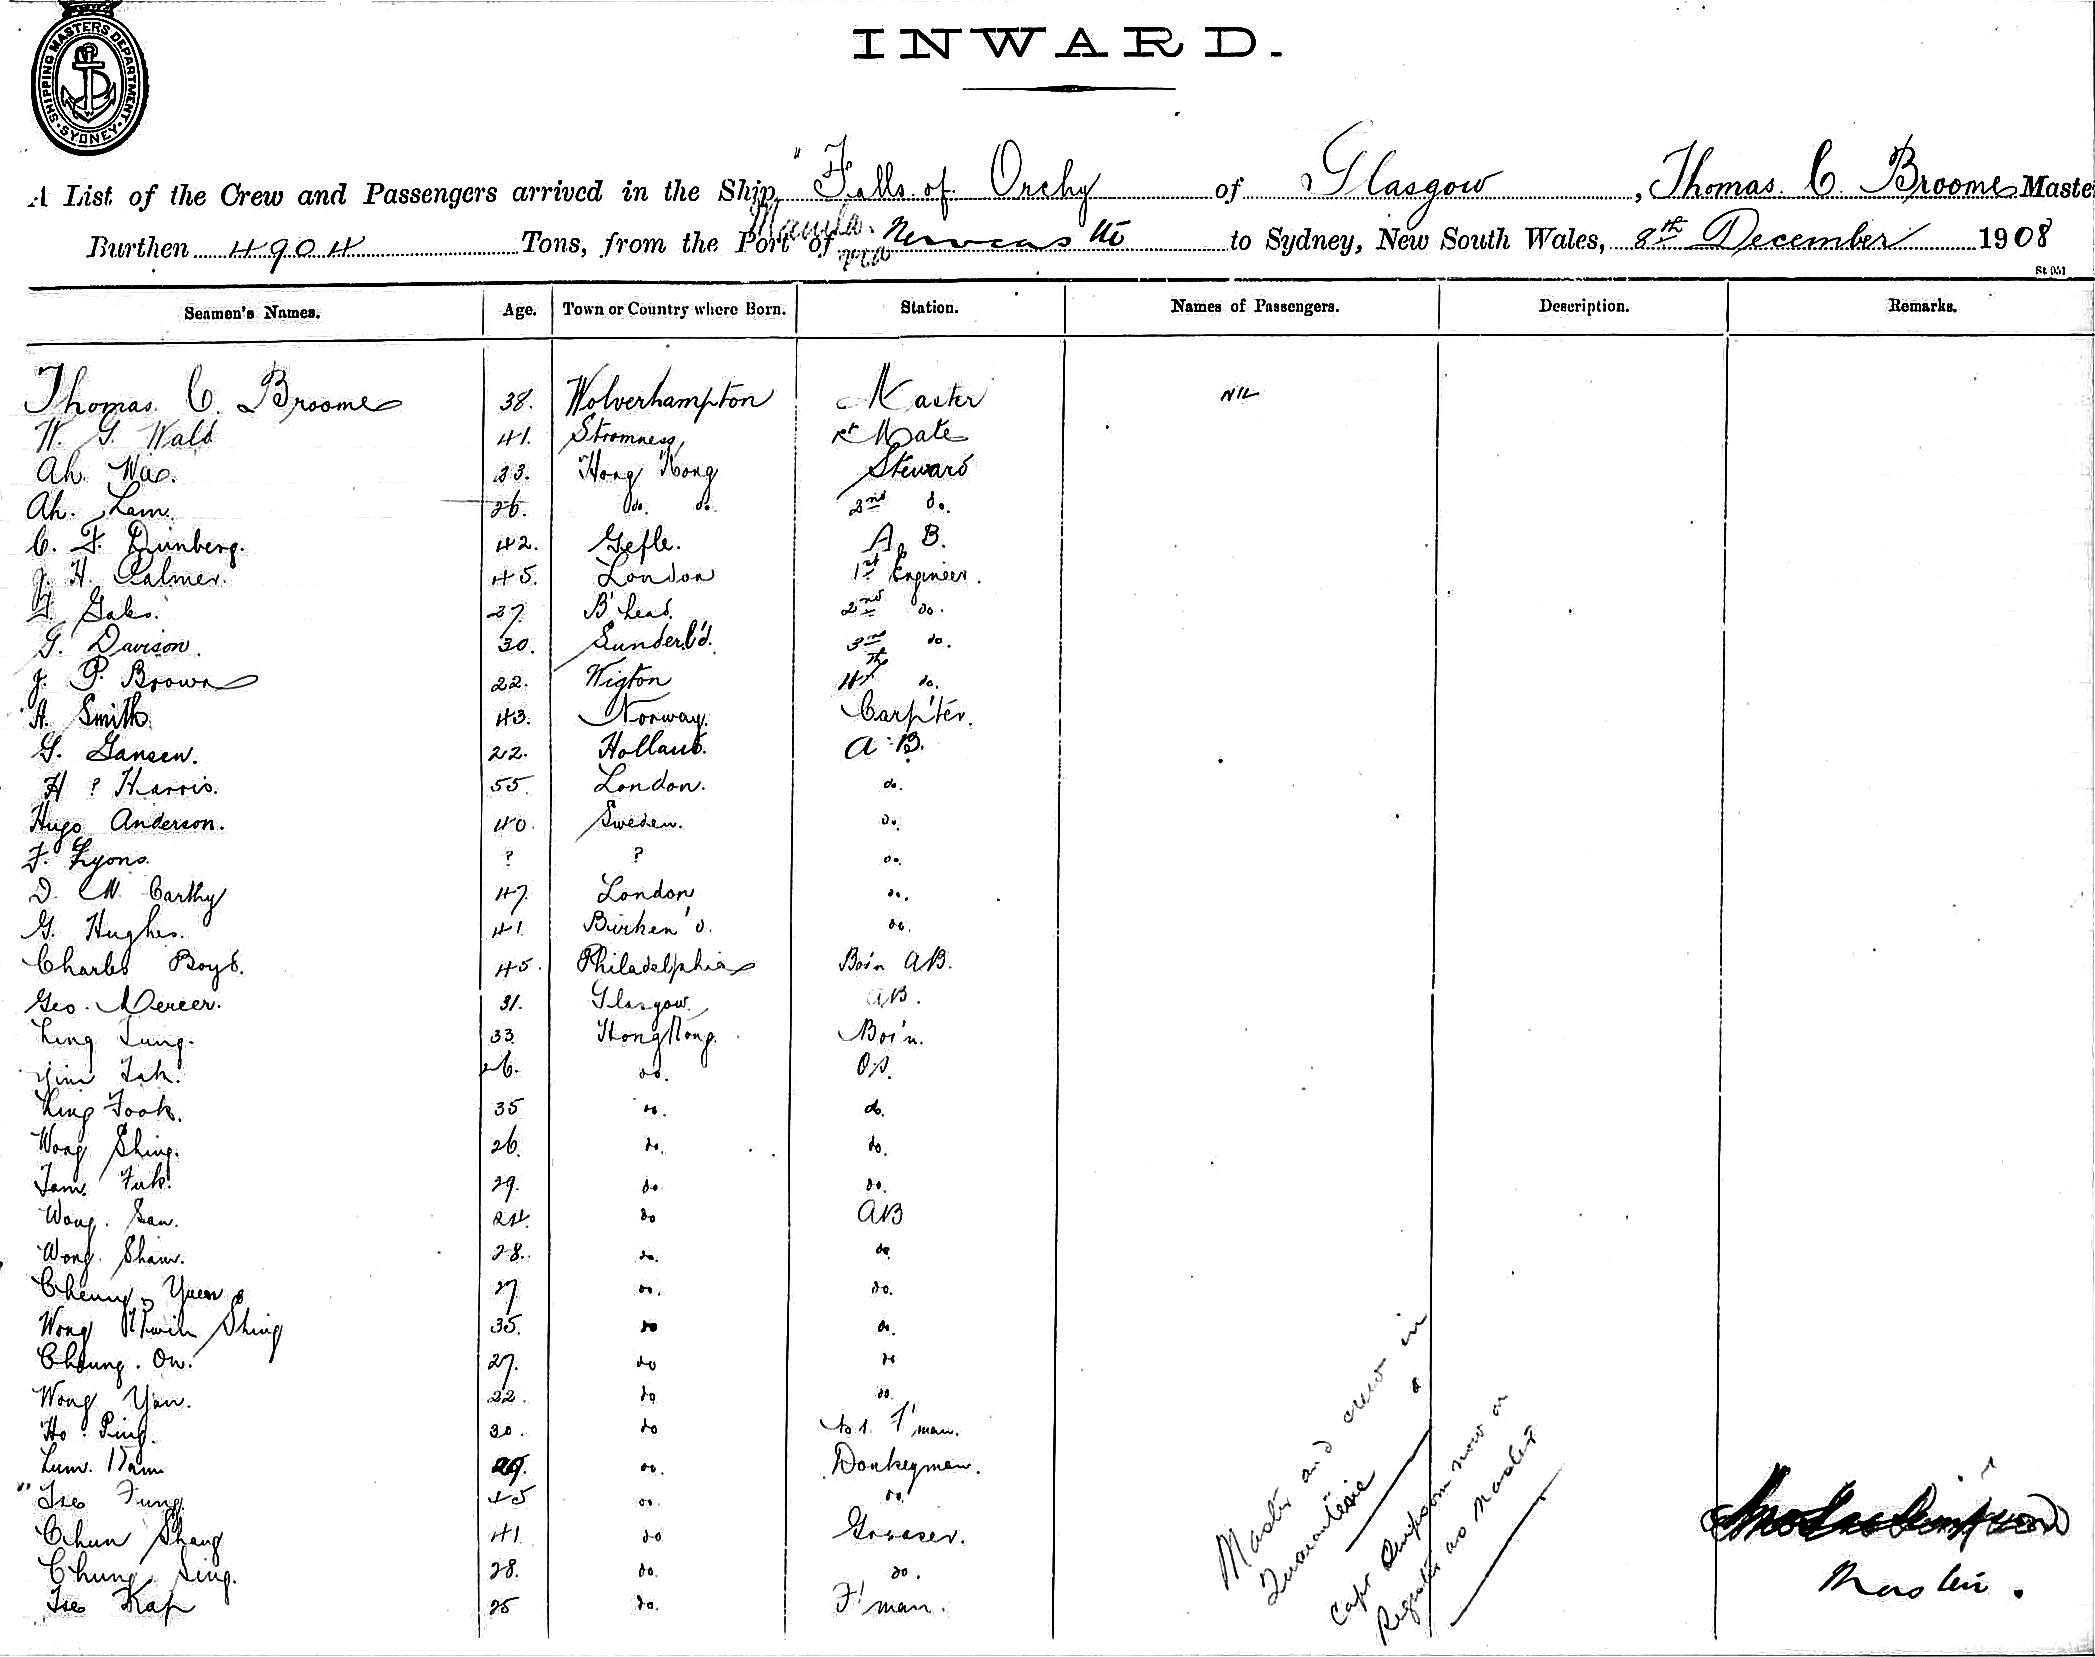 SHIPPING MASTERS DEPARTMENT
SYDNEY
INWARD.
A List of the Crew and Passengers arrived in the Ship "Falls of Orchy of Glasgow, Thomas C. Broome Maste
Burthen 4904 Tons, from the Port of Manila via Newcastle to Sydney, New South Wales, 8th December 1908
St 051
Seamen's Names. Age. Town or Country where Born. Station. Names of Passengers. Description. Remarks.
Thomas C. Broome 38. Wolverhampton Master NIL
W. G. Wald 41. Stromness, 1st Mate
Ah. Wee. 33. Hong Kong Steward
Ah. Lam. 26. do. do. 2nd do.
C. F. Dinnberg. 42. Gefle. A. B.
J. H. Palmer. 45. London 1st Engineer.
37. B'head. 2nd do.
G. Davison. 30. Sunderl'd. 3rd do.
J. P. Brown 22. Wigton 4th do.
A. Smith. 43. Norway. Carp'ter.
G. Jansen. 22. Holland. A.B.
H ? Harris. 55. London. do.
Hugo Anderson. 40. Sweden. do.
F. Lyons. ? ? do.
D. Mc Carthy 47. London do.
G. Hughes. 41. Birken'd. do.
Charles Boyd. 45. Philadelphia Bos'n AB.
Geo. Mercer. 31. Glasgow. AB.
Ling Sung. 33 Hong Kong. Bos'n.
Yim Tak. 26. do. OS.
Ling Fook. 35 do. do.
Wong Shing. 26. do. do.
Tam Fuk. 29. do do.
Wong. San. 24. do AB
Wong. Sham. 28. do. do
Cheung Yuen 27 do. do.
Wong Kwik Shing 35. do do.
Cheung. On. 27. do do
Wong Yan. 22. do do.
Ho. Ping. 30. do No 1. F'man.
Lum. Kam 29. do. Donkeyman.
" Tse Fung. 45 do. do.
Chun Shang 41. do Greaser.
Chung Sing. 28. do. do.
Tse Kap 25 do. F'man.
Master and crew in
Quarantine
Capt Simpson now on
Register as Master
Master.